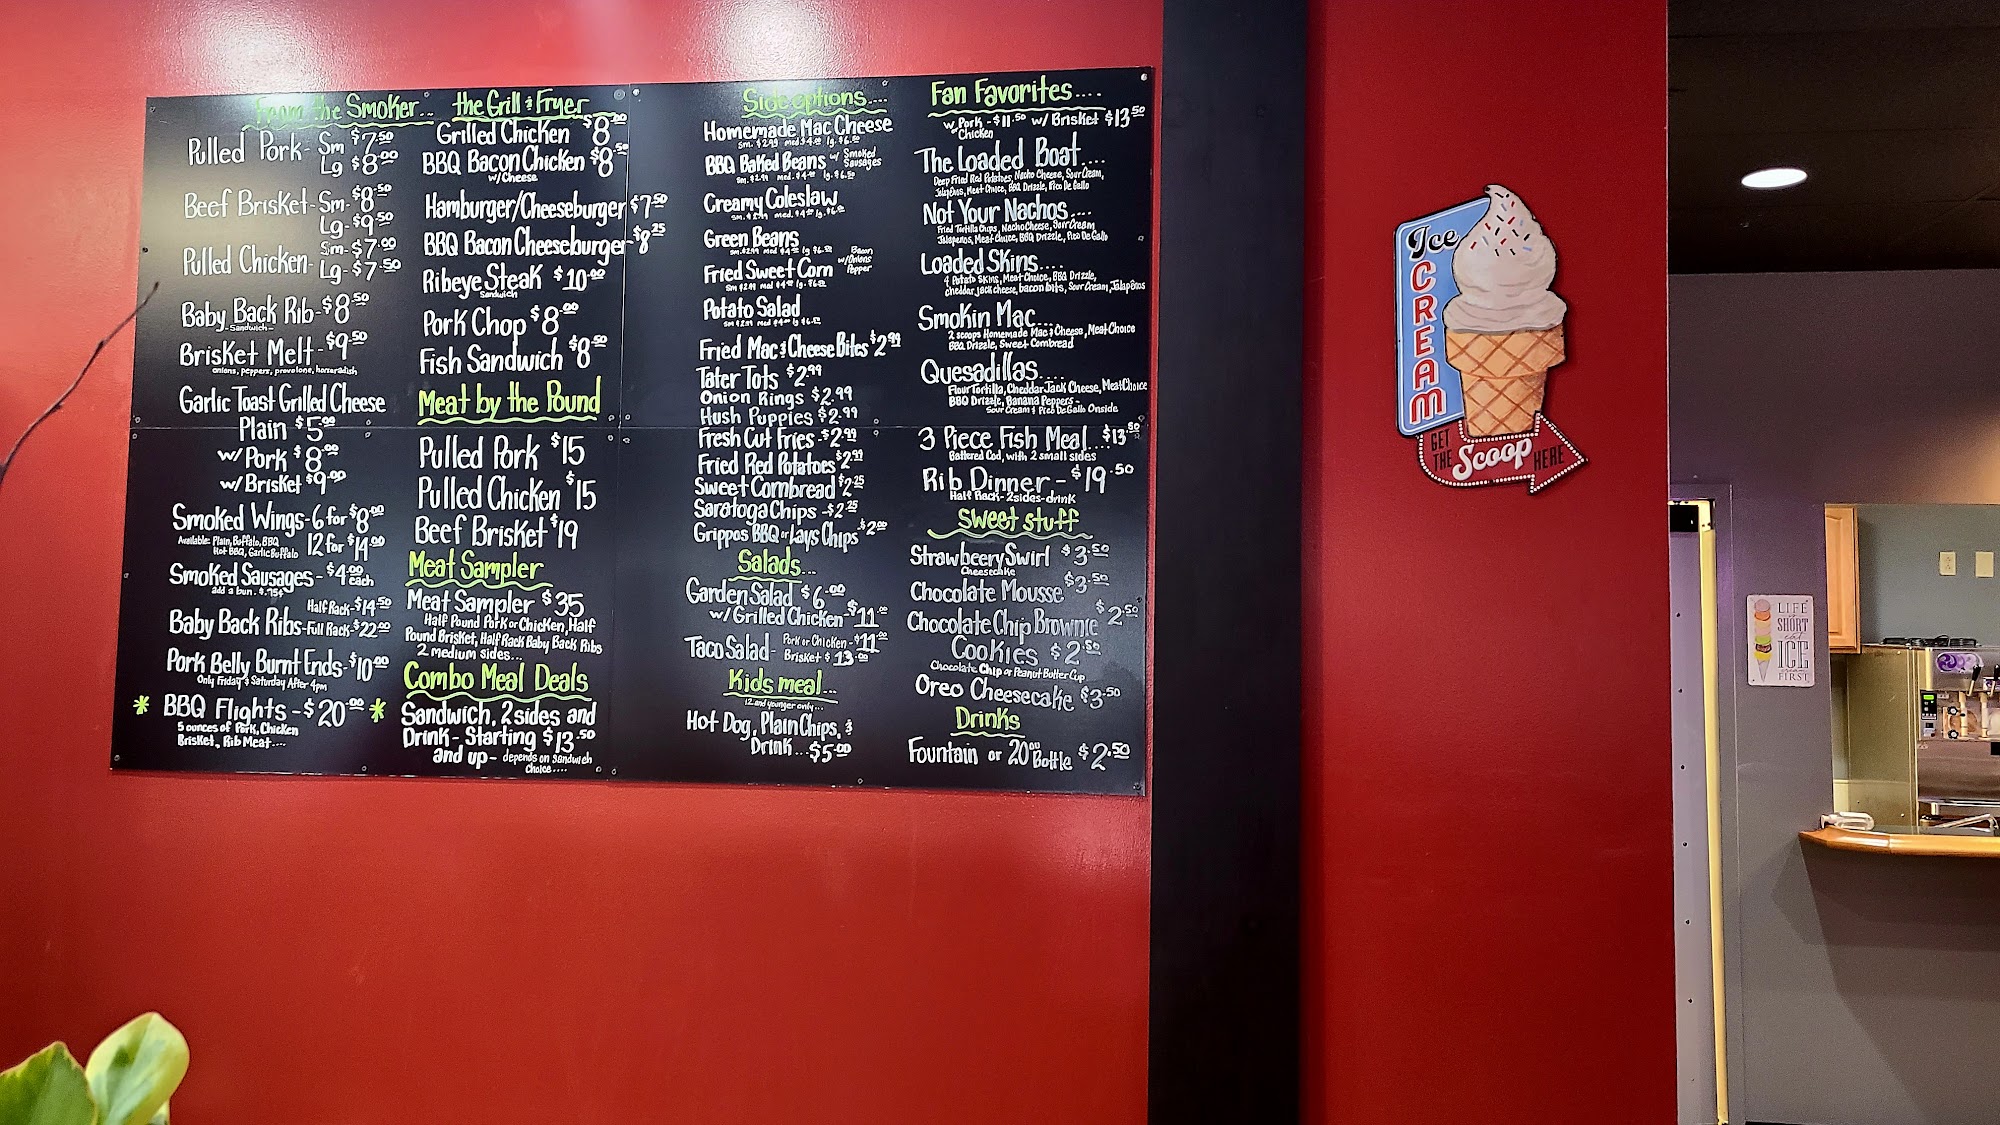 From the Smoker...
Pulled Pork - Sm $7.50
Lg $8.00
Beef Brisket - Sm - $8.50
Lg - $9.50
Pulled Chicken - Sm - $7.00
Lg - $7.50
Baby Back Rib - $8.50
- Sandwich -
Brisket Melt - $9.50
onions, peppers, provolone, horseradish
Garlic Toast Grilled Cheese
Plain $5.00
w/ Pork $8.00
w/ Brisket $9.00
Smoked Wings - 6 for $8.00
Available: Plain, Buffalo, BBQ
Hot BBQ, Garlic Buffalo
12 for $14.00
Smoked Sausages - $4.00 each
add a bun. $.75¢
Baby Back Ribs - Half Rack - $14.50
Full Rack - $22.00
Pork Belly Burnt Ends - $10.00
Only Friday & Saturday After 4pm
* BBQ Flights - $20.00 *
5 ounces of Pork, Chicken
Brisket, Rib Meat....
the Grill & Fryer
Grilled Chicken $8.00
BBQ Bacon Chicken $8.50
w/ Cheese
Hamburger/Cheeseburger $7.50
BBQ Bacon Cheeseburger - $8.25
Ribeye Steak $10.00
Sandwich
Pork Chop $8.00
Fish Sandwich $8.50
Meat by the Pound
Pulled Pork $15
Pulled Chicken $15
Beef Brisket $19
Meat Sampler
Meat Sampler $35
Half Pound Pork or Chicken, Half
Pound Brisket, Half Rack Baby Back Ribs
2 medium sides...
Combo Meal Deals
Sandwich, 2 sides and
Drink - Starting $13.50
and up - depends on Sandwich
Choice....
Side options....
Homemade Mac Cheese
sm. $2.99 med. $4.00 lg. $6.50
BBQ Baked Beans w/ Smoked Sausages
sm. $2.99 med. $4.00 lg. $6.50
Creamy Coleslaw
sm. $2.99 med. $4.00 lg. $6.50
Green Beans
sm $2.99 med $4.00 lg $6.50
Fried Sweet Corn w/ Bacon Onions Pepper
sm $2.99 med $4.00 lg $6.50
Potato Salad
sm $2.99 med $4.00 lg $6.50
Fried Mac & Cheese Bites $2.99
Tater Tots $2.99
Onion Rings $2.99
Hush Puppies $2.99
Fresh Cut Fries - $2.99
Fried Red Potatoes $2.99
Sweet Cornbread $2.25
Saratoga Chips - $2.25
Grippos BBQ or Lays Chips $2.00
Salads...
Garden Salad $6.00
w/ Grilled Chicken $11.00
Taco Salad - Pork or Chicken - $11.00
Brisket $13.00
Kids meal...
12 and younger only...
Hot Dog, Plain Chips, &
Drink... $5.00
Fan Favorites....
w/ Pork or Chicken - $11.50 w/ Brisket $13.50
The Loaded Boat....
Deep Fried Red Potatoes, Nacho Cheese, Sour Cream,
Jalapeños, Meat Choice, BBQ Drizzle, Pico De Gallo
Not Your Nachos....
Fried Tortilla Chips, Nacho Cheese, Sour Cream
Jalapenos, Meat Choice, BBQ Drizzle, Pico De Gallo
Loaded Skins....
4 Potato Skins, Meat Choice, BBQ Drizzle,
cheddar jack cheese, bacon bits, Sour Cream, Jalapeños
Smokin Mac...
2 scoops Homemade Mac & Cheese, Meat Choice
BBQ Drizzle, Sweet Cornbread
Quesadillas....
Flour Tortilla, Cheddar Jack Cheese, Meat Choice
BBQ Drizzle, Banana Peppers -
Sour Cream & Pico De Gallo Onside
3 Piece Fish Meal... $13.50
Battered Cod, with 2 small sides
Rib Dinner - $19.50
Half Rack - 2 sides - drink
Sweet stuff
Strawbeery Swirl $3.50
Cheesecake
Chocolate Mousse $3.50
Chocolate Chip Brownie $2.50
Cookies $2.50
Chocolate Chip or Peanut Butter Cup
Oreo Cheesecake $3.50
Drinks
Fountain or 20 ou Bottle $2.50
Ice
CREAM
GET THE Scoop HERE
LIFE
is
SHORT
eat
ICE
cream
FIRST